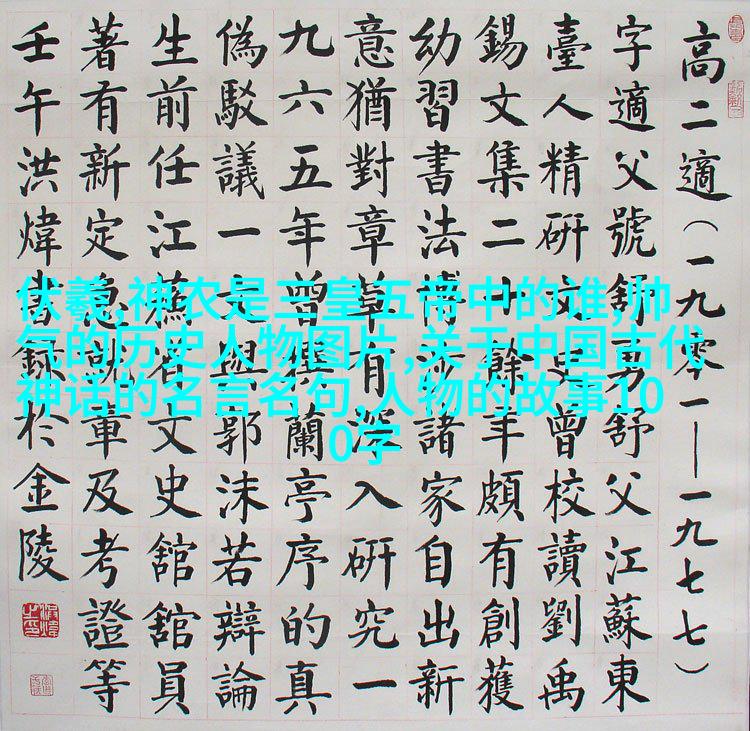 高二適（一九零一——一九七七）
字適父號舒勇舒父江蘇東
臺人精研文史曾校讀劉禹
錫文集二十餘年頗有創獲
幼習書法博涉諸家自出新
意猶對章草有深入研究一
九六五年曾撰蘭亭序的真
偽駁議一文與郭沫若辯論
生前任江蘇省文史舘舘員
著有新定急就章及考證等
壬午洪煒書錄於金陵
伏羲,神农是三皇五帝中的谁,帅
气的历史人物图片,关于中国古代
神话的名言名句,人物的故事10
0字